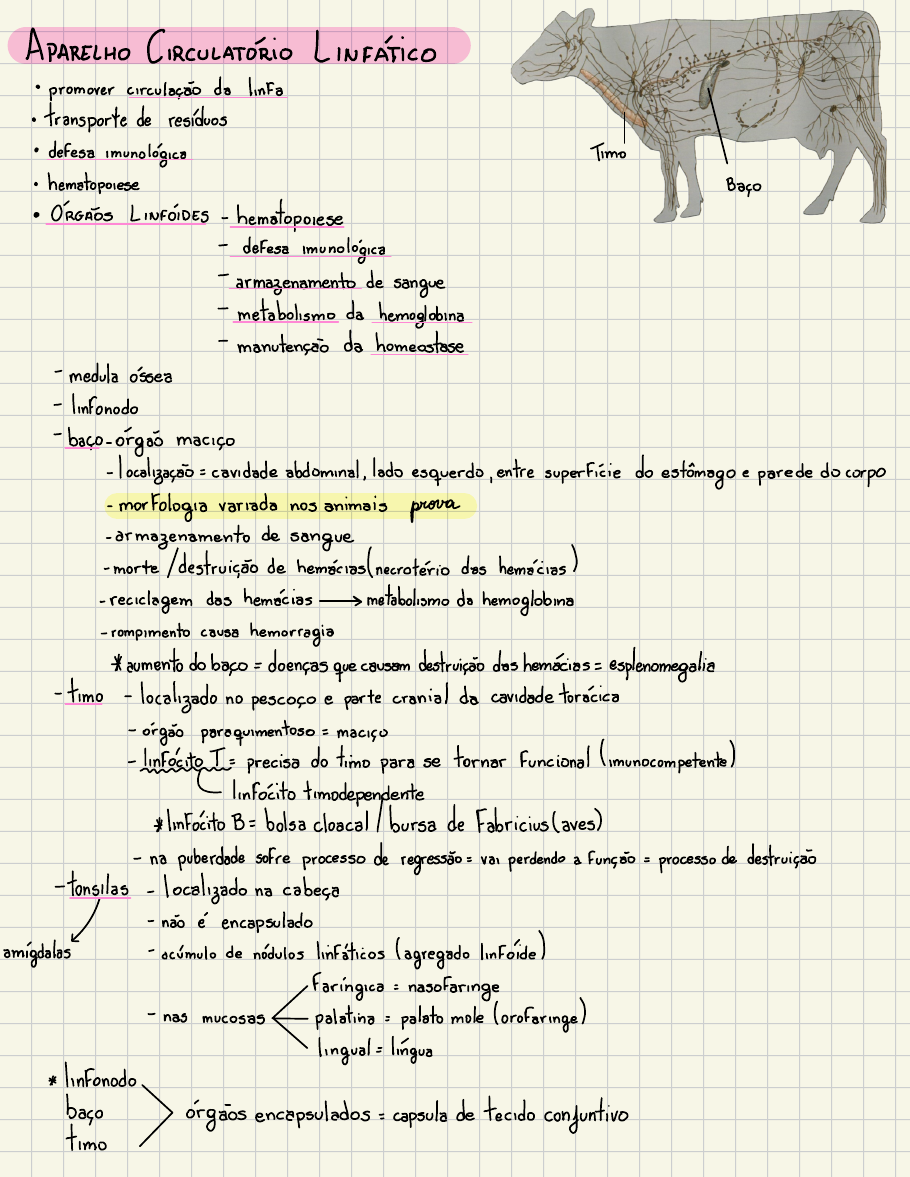 APARELHO CIRCULATÓRIO LINFÁTICO
• promover circulação da linfa
• transporte de resíduos
• defesa imunológica
• hematopoiese
• ÓRGÃOS LINFÓIDES - hematopoiese
- defesa imunológica
- armazenamento de sangue
- metabolismo da hemoglobina
- manutenção da homeostase
Timo
Baço
- medula óssea
- linfonodo
- baço - órgão maciço
- localização = cavidade abdominal, lado esquerdo, entre superfície do estômago e parede do corpo
- morfologia variada nos animais prova
- armazenamento de sangue
- morte / destruição de hemácias (necrotério das hemácias)
- reciclagem das hemácias → metabolismo da hemoglobina
- rompimento causa hemorragia
* aumento do baço = doenças que causam destruição das hemácias = esplenomegalia
- timo - localizado no pescoço e parte cranial da cavidade torácica
- órgão paraquimentoso = maciço
- linfócito T = precisa do timo para se tornar funcional (imunocompetente)
linfócito timodependente
* linfócito B = bolsa cloacal / bursa de Fabricius (aves)
- na puberdade sofre processo de regressão = vai perdendo a função = processo de destruição
- tonsilas - localizado na cabeça
- não é encapsulado
amígdalas
- acúmulo de nódulos linfáticos (agregado linfóide)
- nas mucosas
faríngica = nasofaringe
palatina = palato mole (orofaringe)
lingual = língua
* linfonodo
baço
timo
órgãos encapsulados = capsula de tecido conjuntivo